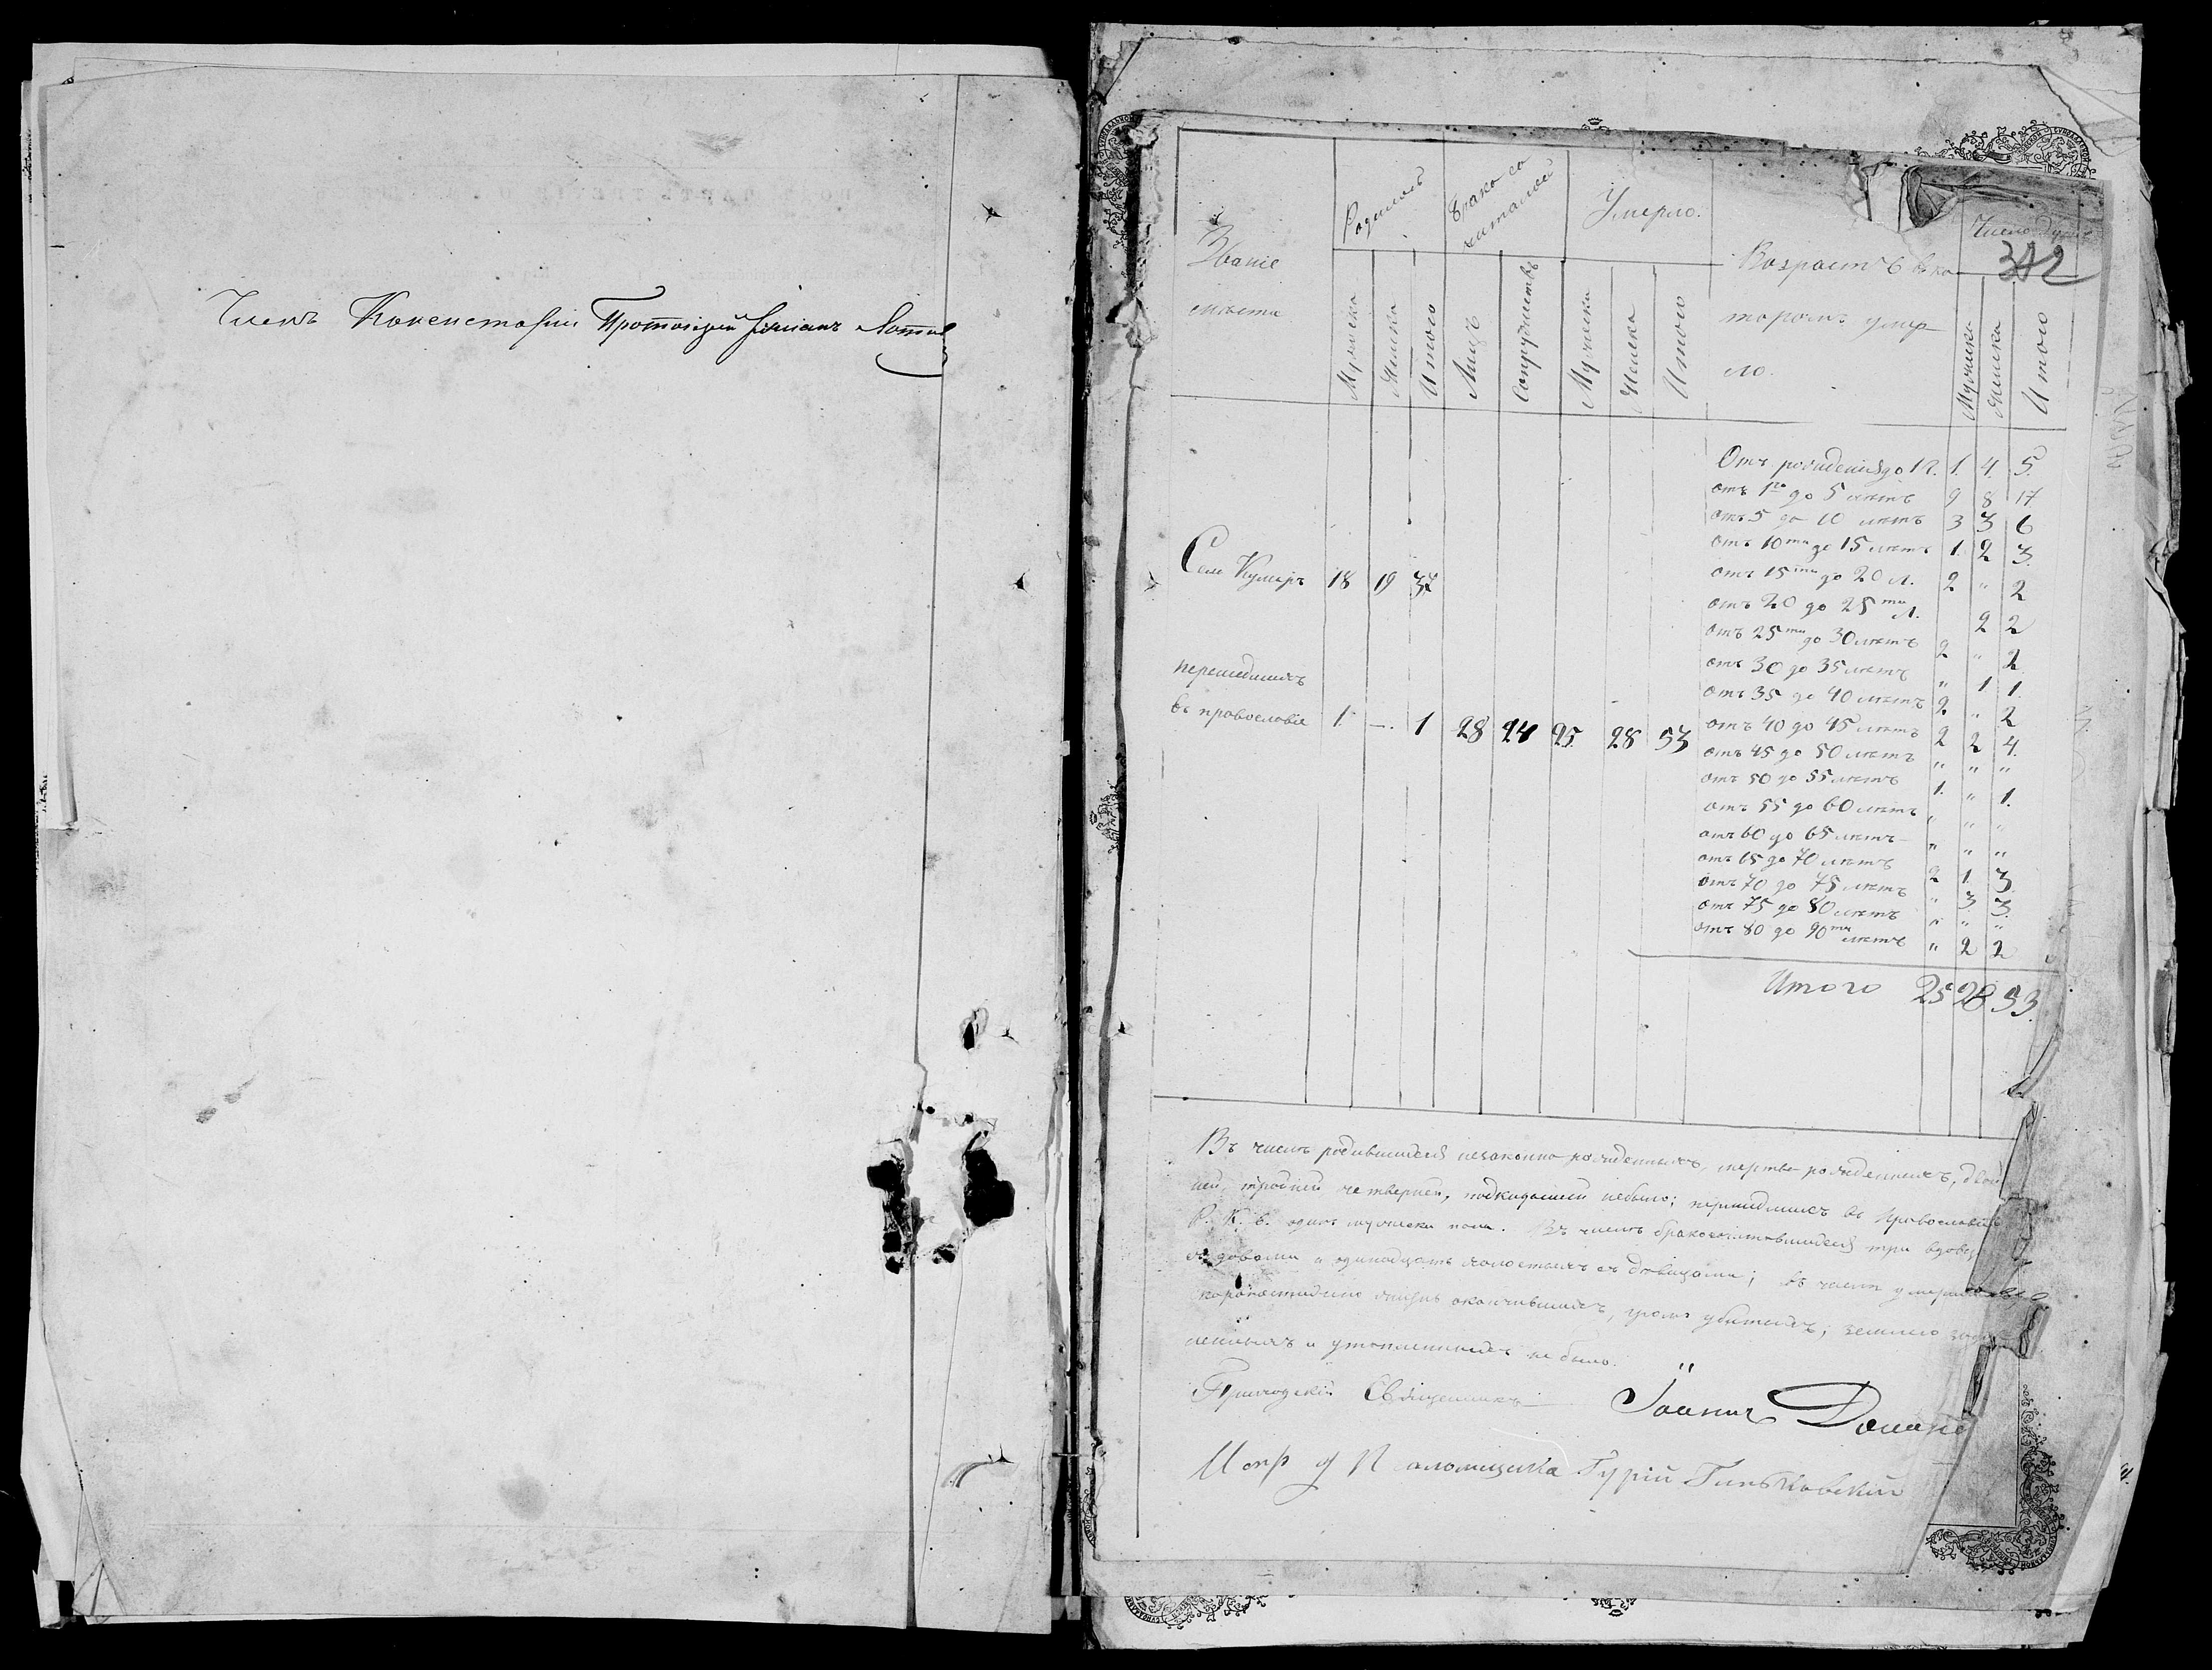 Членъ Консисторіи Протоіерей
342
Званіе
мѣста
Родилось
Брако со
четались
Умерло.
Возрастъ въ ко
торомъ умер
ло.
Число душъ
Мужеска
Женска
Итого
Лицъ
Супружествъ
Мужеска
Женска
Итого
Мужеска
Женска
Итого
Отъ рожденія до 1 г. 1. 4. 5.
отъ 1го до 5 лѣтъ 9 8 17
отъ 5 до 10 лѣтъ 3 3 6
отъ 10ти до 15 лѣтъ 1. 2 3.
отъ 15ти до 20 л. 2 „ 2
отъ 20 до 25ти л. 2 2
отъ 25ти до 30 лѣтъ 2 „ 2
отъ 30 до 35 лѣтъ „ 1 1.
отъ 35 до 40 лѣтъ 2 „ 2
отъ 40 до 45 лѣтъ 2 2 4.
отъ 45 до 50 лѣтъ „ „ „
отъ 50 до 55 лѣтъ 1. „ 1.
отъ 55 до 60 лѣтъ „ „ „
отъ 60 до 65 лѣтъ „ „ „
отъ 65 до 70 лѣтъ 2 1. 3
отъ 70 до 75 лѣтъ „ 3 3.
отъ 75 до 80 лѣтъ „ „ „
отъ 80 до 90ти лѣтъ „ 2 2
Итого 25 28 53.
Село 18 19 37
перешедшихъ
въ православіе 1. —. 1 28 24 25. 28 53
Въ числѣ родившихся незаконно рожденныхъ, мертво рожденныхъ, двой
ней, тройней четверней, подкидышей небыло; перешедшихъ въ православіе
Р. К. в. одинъ мужеска пола. Въ числѣ бракосочетавшихся три вдовца
съ вдовами и одинадцать холостыхъ съ дѣвицами; въ числѣ
скоропостижно жизнь окончившихъ, громъ убитыхъ; землею
ленныхъ и утопленныхъ не было.
Приходскій Священникъ Іоаннъ
Испр д Псаломщика Гурій